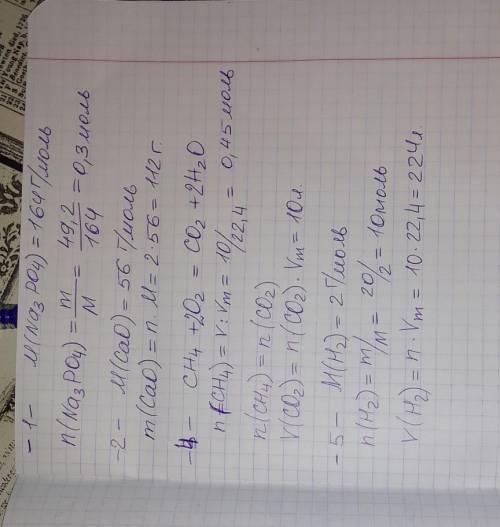 -1- M(Na3PO4) = 164 г/моль
n(Na3PO4) = m/M = 49,2/164 = 0,3 моль
-2- M(CaO) = 56 г/моль
m(CaO) = n·M = 2·56 = 112 г.
-4- CH4 + 2O2 = CO2 + 2H2O
n(CH4) = V:Vm = 10/22,4 = 0,45 моль
n(CH4) = n(CO2)
V(CO2) = n(CO2)·Vm = 10 л.
-5- M(H2) = 2 г/моль
n(H2) = m/M = 20/2 = 10 моль
V(H2) = n·Vm = 10·22,4 = 224 л.